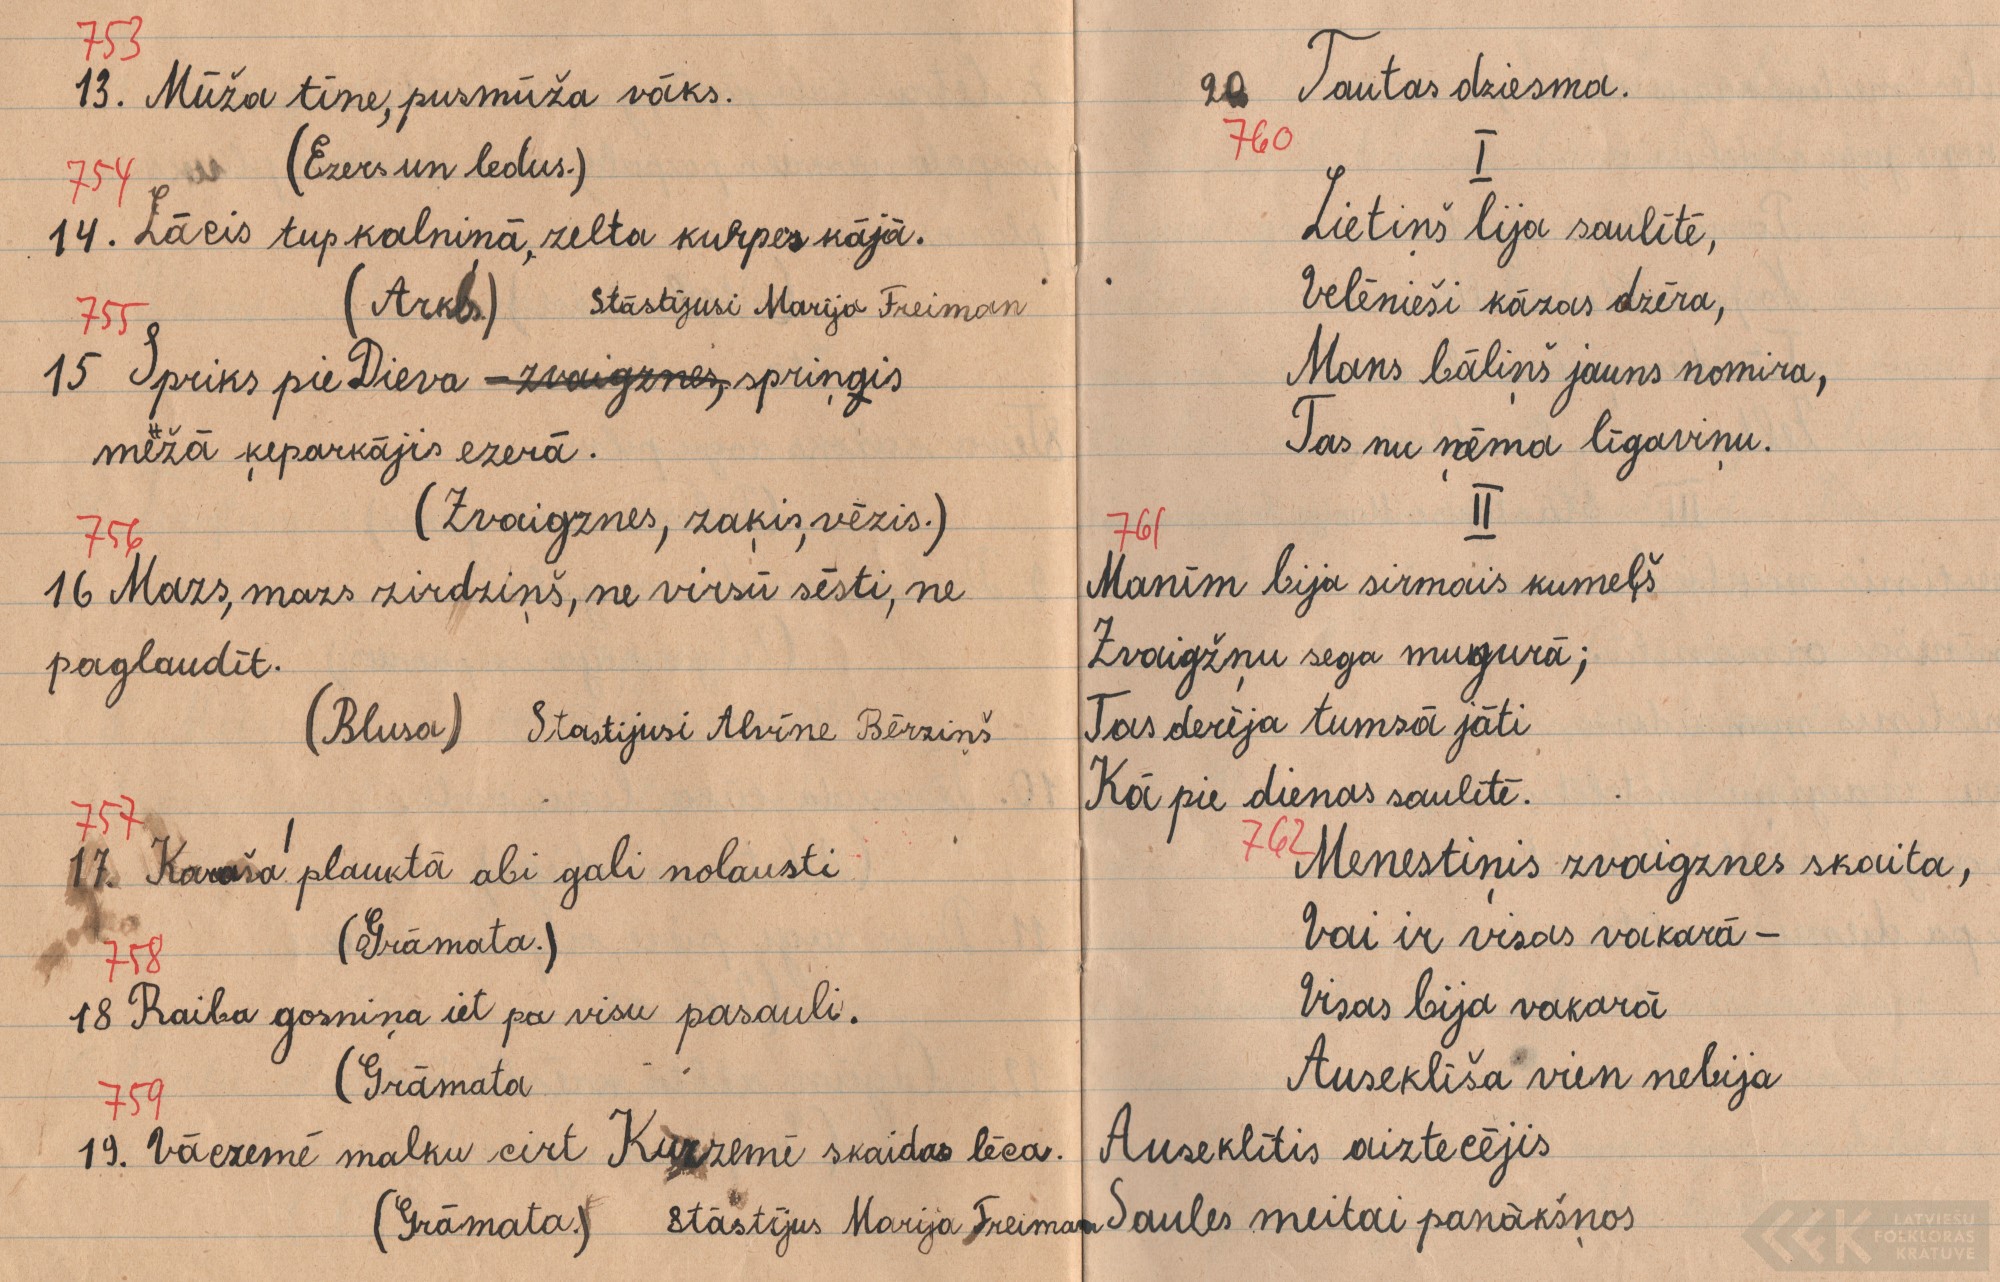 753
13. Mūža tīne, pusmūža vāks.
(Ezers un ledus.)
754
14. Lācis tup kalniņā, zelta kurpes kājā.
(Arkls.) Stāstījusi Marija Freiman
755
15 Spriks pie Dieva – zvaigznes, spriņģis
mežā ķeparkājis ezerā.
(Zvaigznes, zaķis, vēzis.)
756
16 Mazs, mazs zirdziņš, ne virsū sēsti, ne
paglaudīt.
(Blusa) Stastijusi Alvīne Bērziņš
757
17. plauktā abi gali nolausti
(Grāmata.)
758
18 Raiba gosniņa iet pa visu pasauli.
(Grāmata
759
19. Vāczemē malku cirt Kurzemē skaidas lēca.
(Grāmata.) Stāstījus Marija Freiman
20 Tautas dziesma.
760
I
Lietiņš lija saulītē,
Velēnieši kāzas dzēra,
Mans bāliņš jauns nomira,
Tas nu ņēma līgaviņu.
II
761
Manīm bija sirmais kumeļš
Zvaigžņu sega mugurā;
Tas derēja tumsā jāti
Kā pie dienas saulītē.
762
Menestiņis zvaigznes skaita,
Vai ir visas vakarā –
Visas bija vakarā
Auseklīša vien nebija
Auseklītis aiztecējis
Saules meitai panākšņos
LATVIEŠU
FOLKLORAS
KRATUVE